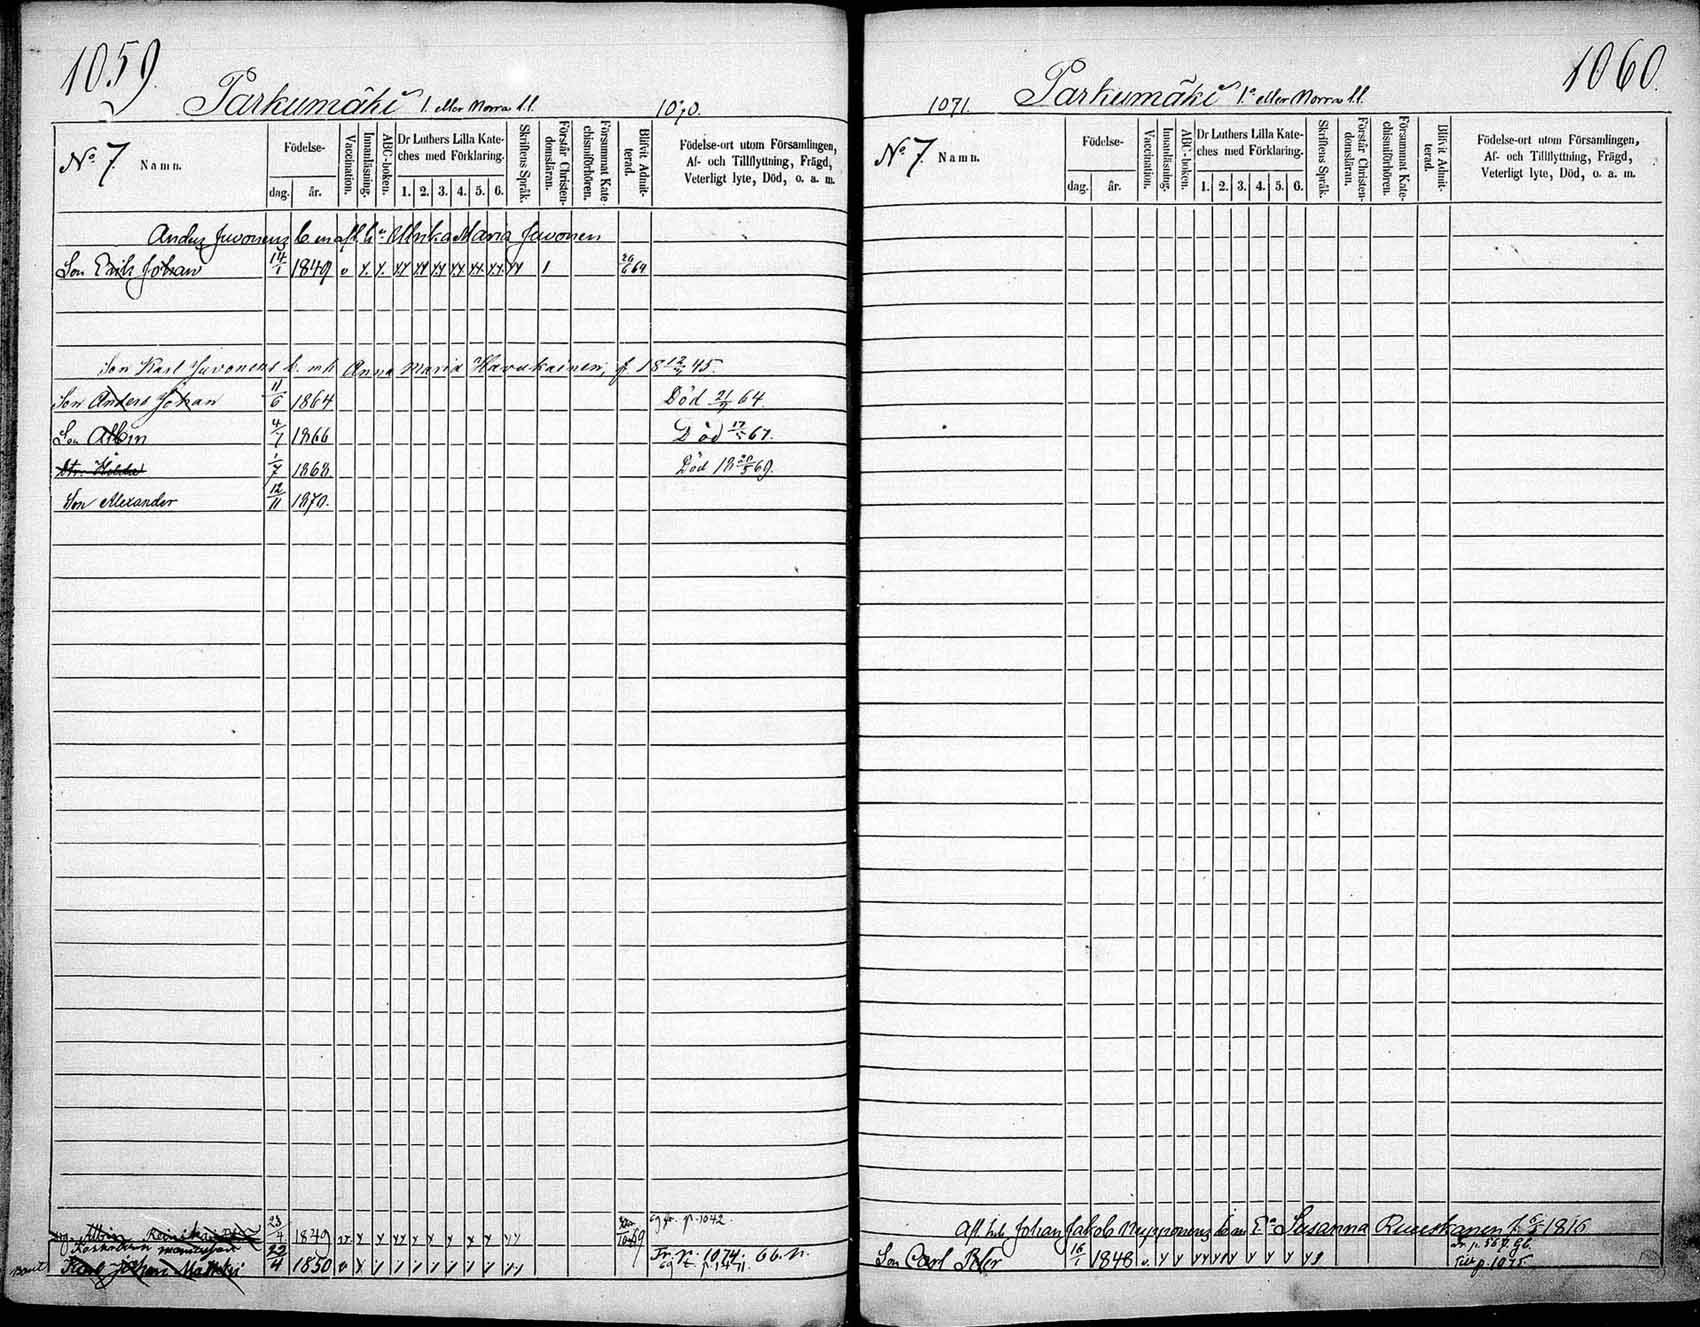 1059
Parkumäki 1. eller Norra l.l.
1070.
No 7.
Namn.
Födelse-
dag. år.
Vaccination.
Innanläsning.
ABC-boken.
Dr Luthers Lilla Kate-
ches med Förklaring.
1. 2. 3. 4. 5. 6.
Skriftens Språk.
Förstår Christen-
domsläran.
Försummat Kate-
chismiförhören.
Blifvit Admit-
terad.
Födelse-ort utom Församlingen,
Af- och Tillflyttning, Frägd,
Veterligt lyte, Död, o. a. m.
Ulrika Maria Juvonen
Son Erik Johan 14/1 1849 v y. y. yy yy yy yy yy yy yy 1
Son Karl Juvonens h. mh Anna Maria Havukainen, f. 18 12/ 45.
Son Anders Johan 11/6 1864 Död 21/9 64.
Son Albin 4/7 1866 Död 17/ 67.
Dtr. Hilda 1/7 1868 Död 18 20/5 69.
Son Alexander 12/11 1870.
Albin 23/4 1849 p. 1042.
Karl Johan Matthei 22/4 1850 1074. 66.
1060.
1071.
Parkumäki 1a eller Norra l.l.
No 7
Namn.
Födelse-
dag. år.
Vaccination.
Innanläsning.
ABC-boken.
Dr Luthers Lilla Kate-
ches med Förklaring.
1. 2. 3. 4. 5. 6.
Skriftens Språk.
Förstår Christen-
domsläran.
Försummat Kate-
chismiförhören.
Blifvit Admit-
terad.
Födelse-ort utom Församlingen,
Af- och Tillflyttning, Frägd,
Veterligt lyte, Död, o. a. m.
Johan Jakob Susanna 1816
Son Carl 16/1 1848 p. 1075.